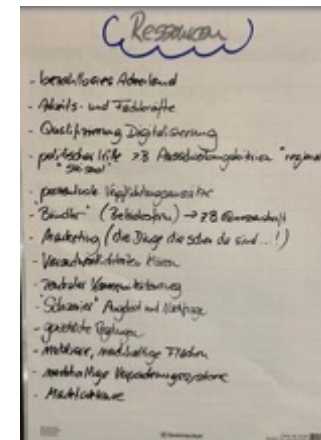 Ressourcen
- bezahlbares Ackerland
- Arbeits- und Fachkräfte
- Qualifizierung Digitalisierung
- politischer Wille zB Ausschreibungskriterien "regional"
"saisonal"
- prozentuale Verpflichtungsansätze
- "Bündler" (Betriebsform) → zB Genossenschaft
- Marketing (die Dinge die schon da sind...!)
- Verantwortlichkeiten klären
- zentraler
- "Scharnier" Angebot und Nachfrage
- gesetzliche Regelungen
- nachhaltige Flächen
- nachhaltige Verpackungssysteme